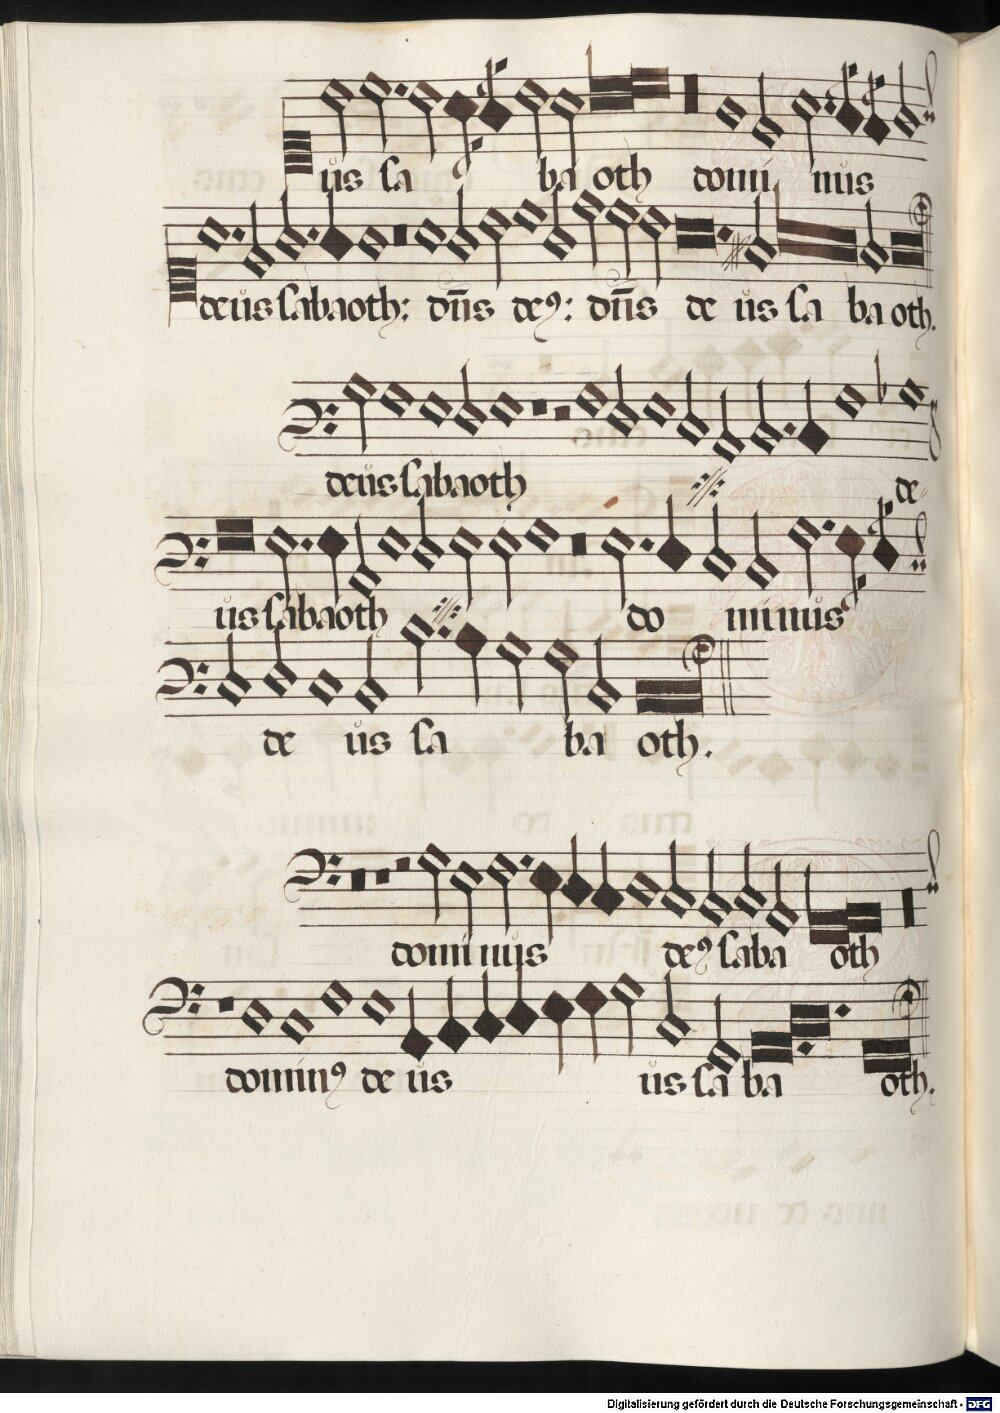 us sa ba oth domi nus
deus sabaoth: dn̄s de9: dn̄s de us sa ba oth.
deus sabaoth de-
us sabaoth do minus
de us sa ba oth.
dominus de9 saba oth
domin9 de us us sa ba oth.
Digitalisierung gefördert durch die Deutsche Forschungsgemeinschaft - DFG